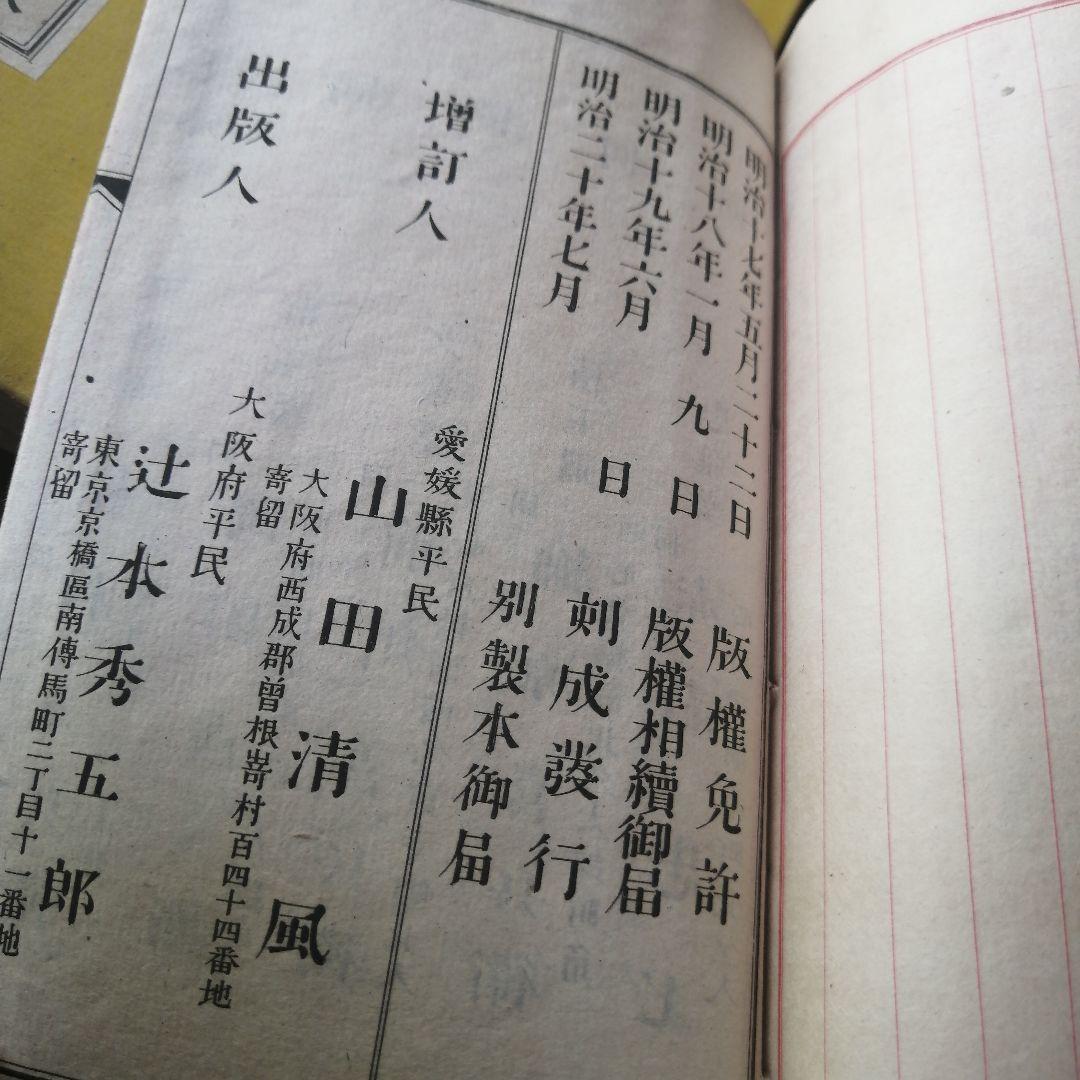 明治十七年五月二十二日 版權免許
明治十八年一月九日 版權相續御届
明治十九年六月 日 刺成發行
明治二十年七月 別製本御届
愛媛縣平民
增訂人 山田清風
大阪府西成郡曾根嵜村百四十四番地
寄留
大阪府平民
出版人 辻本秀五郎
東京京橋區南傳馬町二丁目十一番地
寄留